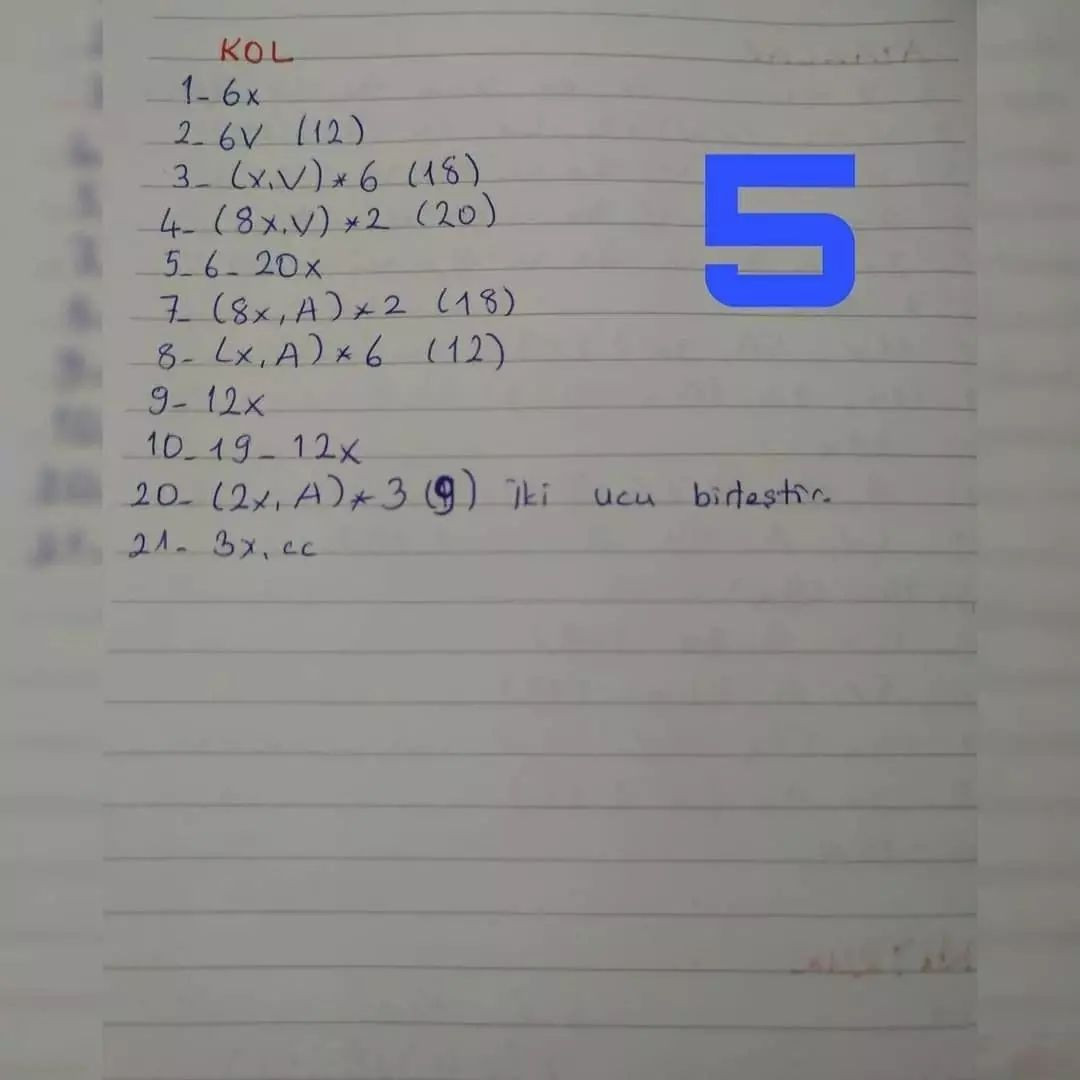 KOL
1- 6x
2- 6V (12)
3- (x,V)*6 (18)
4- (8x,V)*2 (20)
5-6- 20x
7- (8x,A)*2 (18)
8- (x,A)*6 (12)
9- 12x
10-19- 12x
20- (2x,A)*3 (9) iki ucu birleştir.
21- 3x,cc
5